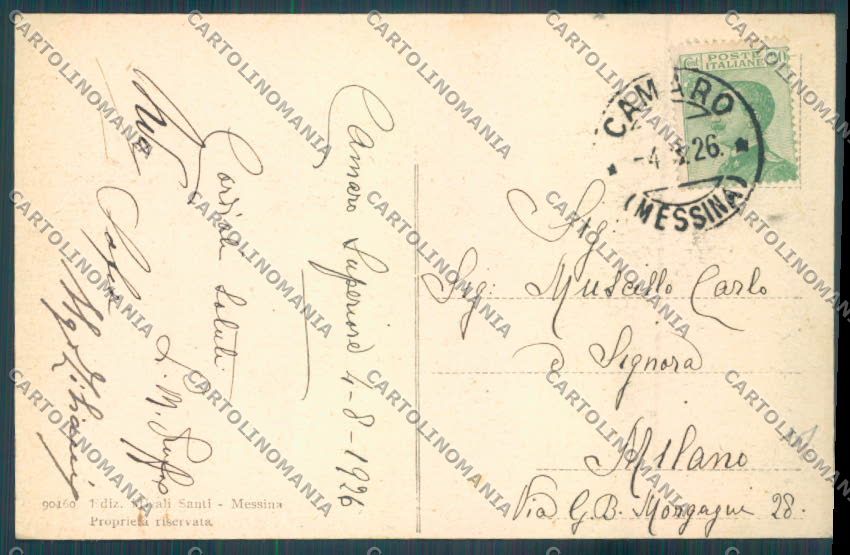 Camaro Superiore 4-8-1926
Cordiali Saluti
90160 Ediz. Nivali Santi - Messina
Proprietà riservata
POSTE
ITALIANE
CAMARO
-4. 26.
(MESSINA)
Sig:
Sig: Muscillo Carlo
e Signora
Milano
Via G.B. Morgagni 28.
CARTOLINOMANIA